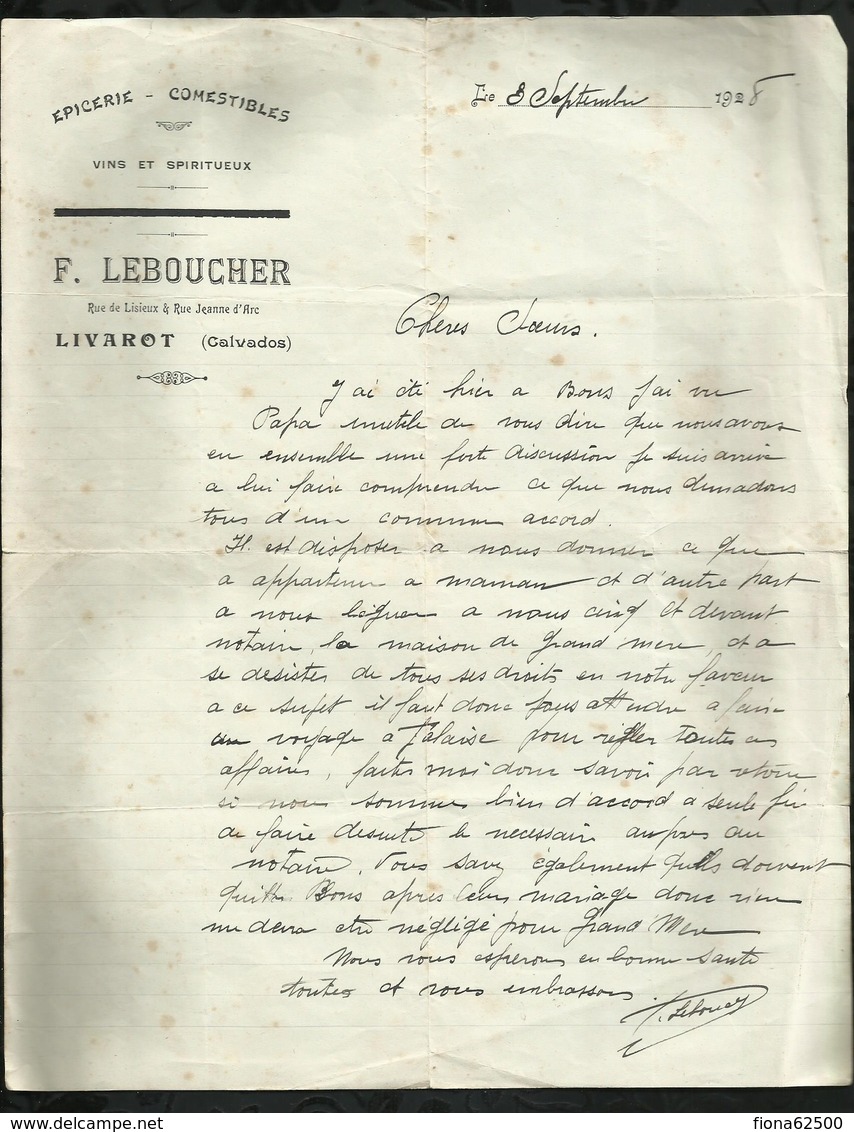 EPICERIE - COMESTIBLES
VINS ET SPIRITUEUX
F. LEBOUCHER
Rue de Lisieux & Rue Jeanne d'Arc
LIVAROT (Calvados)
Le 8 Septembre 1928
Cheres Sœurs.
J'ai été hier a Bons j'ai vu
Papa inutile de vous dire que nous avons
eu ensemble une forte discussion je suis arrivé
a lui faire comprendre ce que nous demadons
tous d'un commun accord.
Il est disposer a nous donner ce que
a appartenu a maman et d'autre part
a nous léguer a nous cinq et devant
notaire, la maison de grand mere, et a
se desister de tous ses droits en notre faveur
a ce sujet il faut donc vous attendre a faire
un voyage a Falaise pour régler toutes ces
affaires, faites moi donc savoir par retour
si nous sommes bien d'accord a seule fin
de faire desuite le necessaire aupres du
notaire. Vous savez également qu'ils doivent
quitter Bons apres leur mariage donc rien
ne devra etre négligé pour Grand'Mere
Nous vous esperons en bonne santé
toutes et vous embrassons
F. Leboucher
delcampe.net
fiona62500